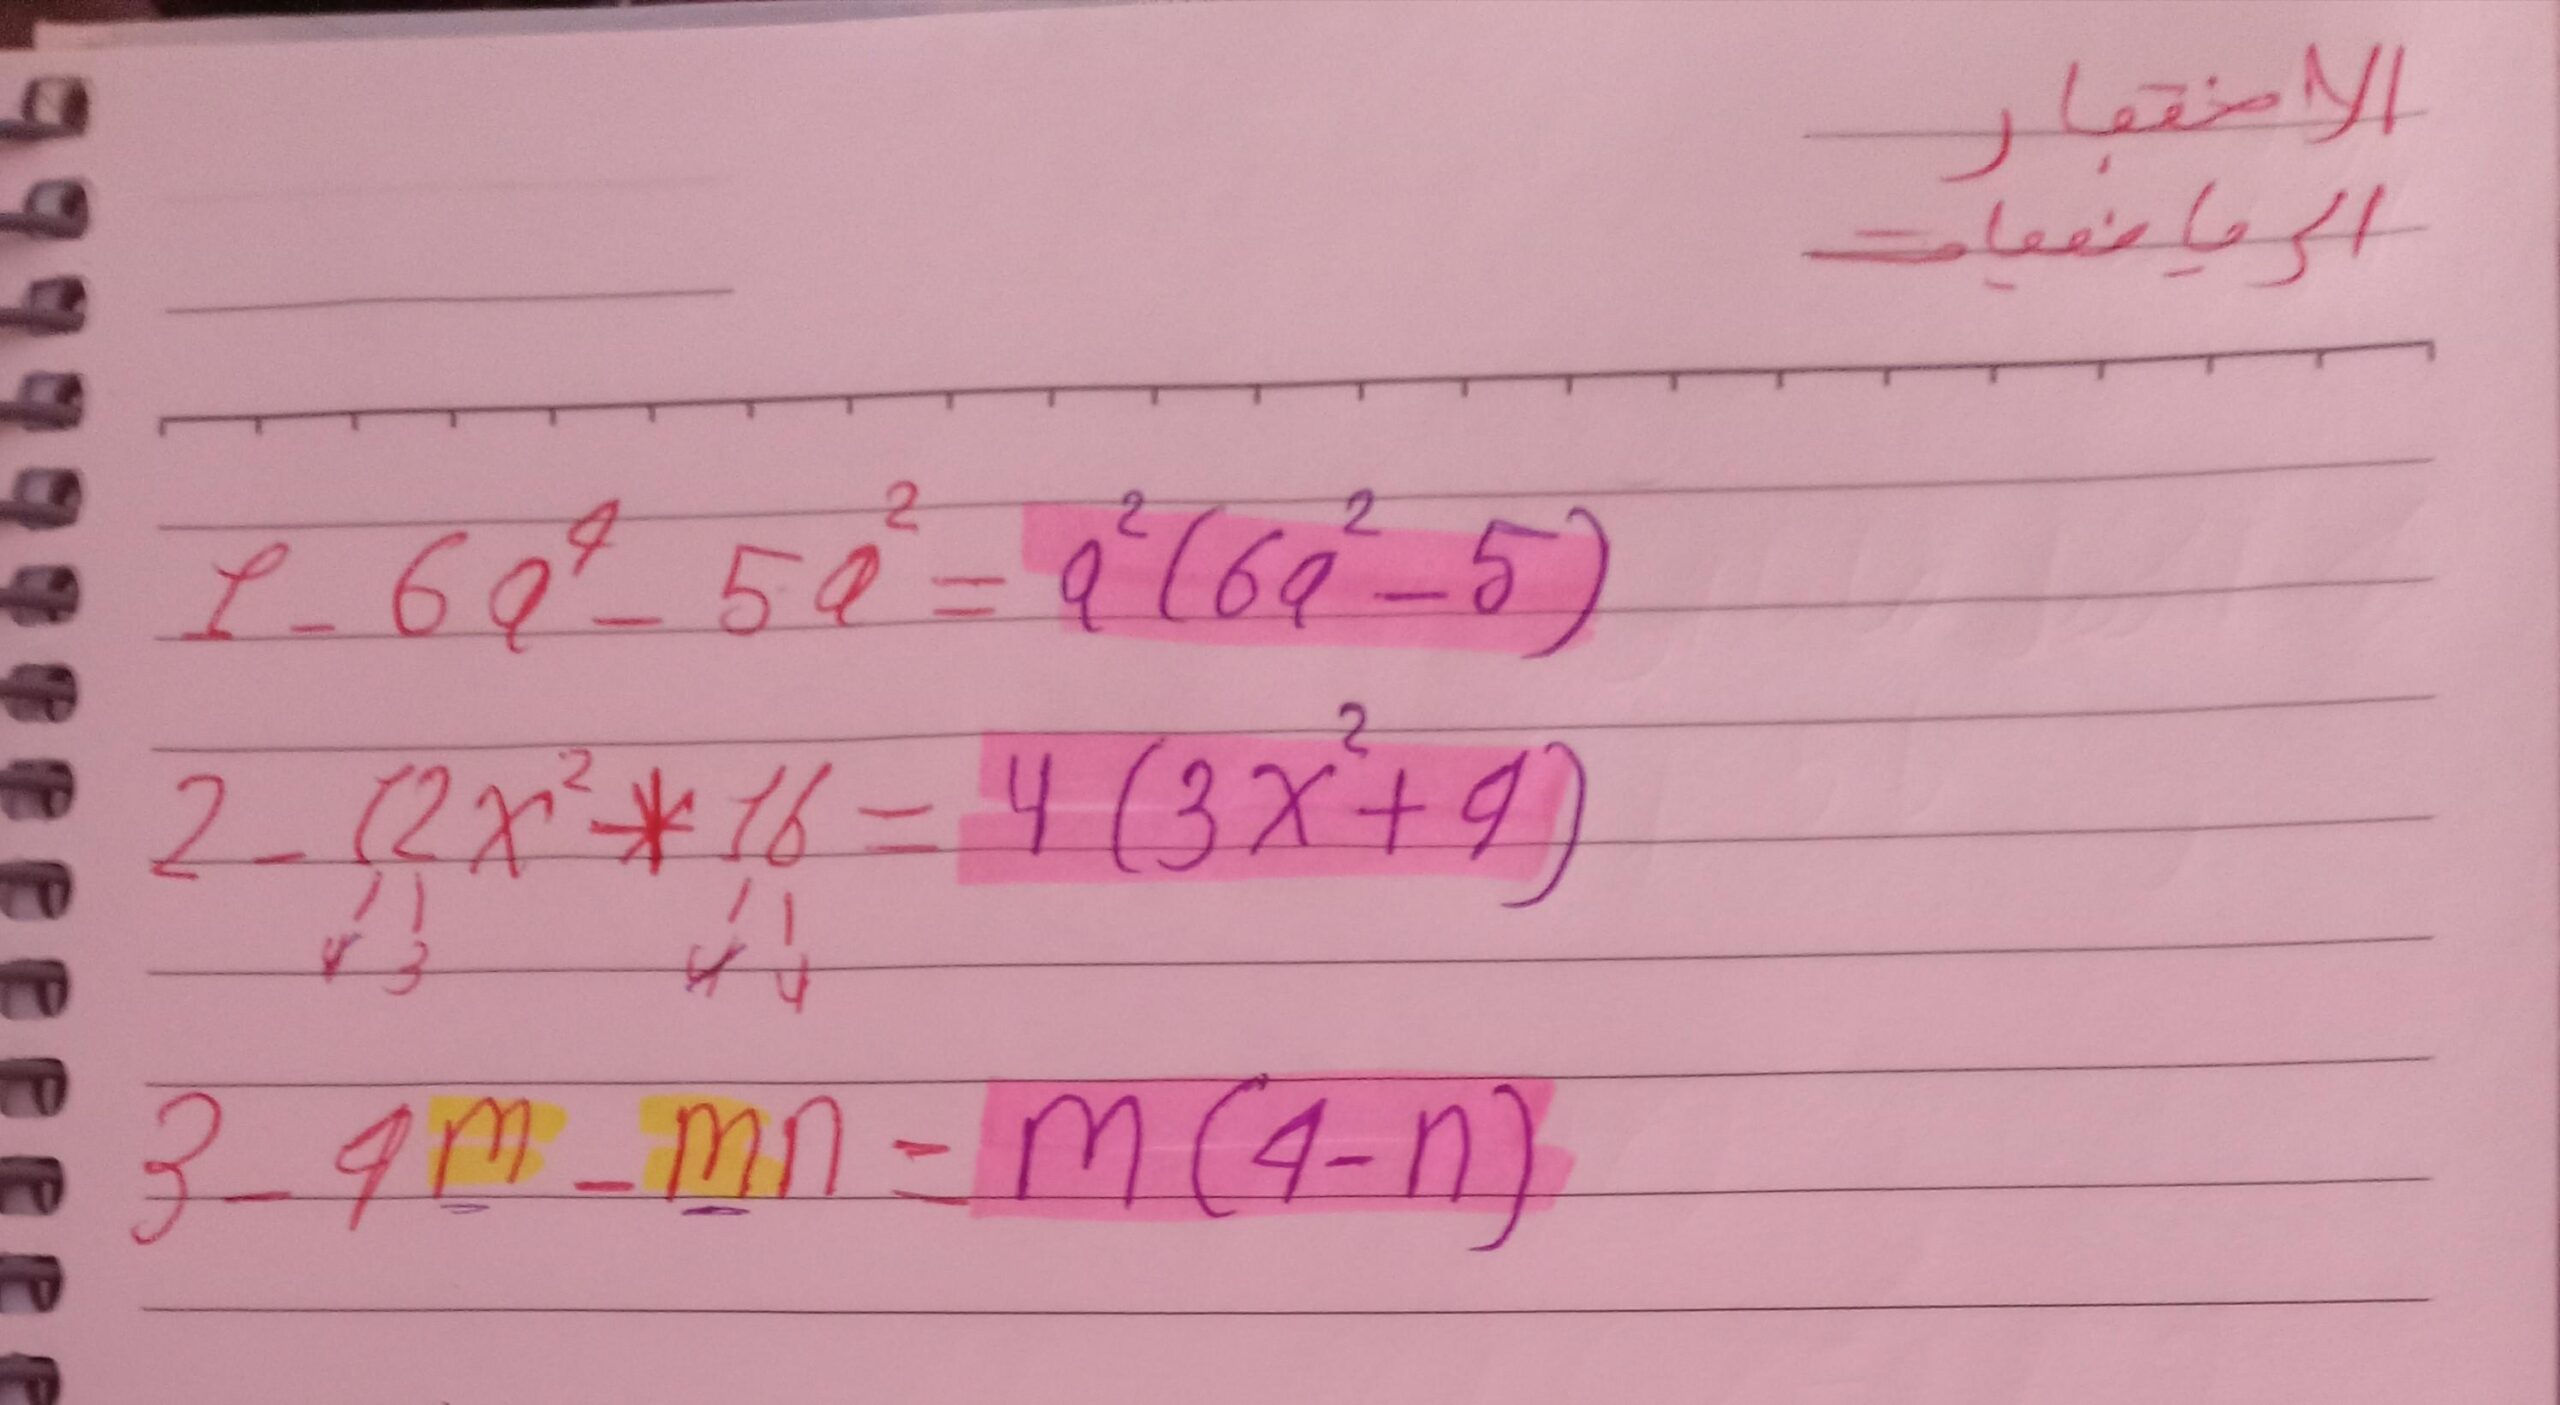 الاختبار
الرياضيات
1 - 6a⁴ - 5a² = a²(6a² - 5)
2 - 12x² + 16 = 4(3x² + 4)
4 3 4 4
3 - 4m - mn = m(4 - n)